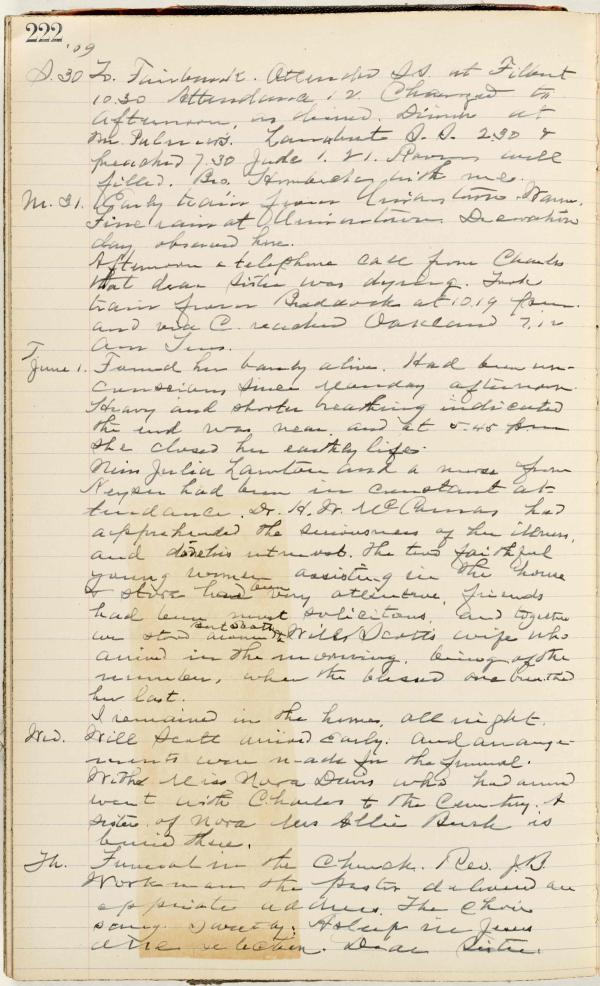 222
'09
S. 30 To Fairbank. Attended S.S. at Filbert
10.30 Attendance 12. Changed to
afternoon, as desired. Dinner at
Mr. Palmer's. Lambert S.S. 2.30 &
preached 7.30 Jude 1. 21. Room well
filled. Bro. with me.
M. 31. Early train from Uniontown. Warm.
Fine rain at Uniontown. Decoration
day observed here.
Afternoon a telephone call from Charles
that dear Sister was dying. Took
train from Braddock at 10.19 p.m.
and via C. reached Oakland 7.12
a.m. Tues.
T.
June 1. Found her barely alive. Had been un-
conscious since Monday afternoon.
Heavy and shorter breathing indicated
the end was near, and at 5.45 p.m.
she closed her earthly life.
Miss Julia Lawton and a nurse from
Keyser had been in constant at-
tendance. Dr. H. W. McComas had
apprehended the seriousness of her illness,
and did his utmost. The two faithful
young women assisting in the house
& store had been very attentive, friends
had been most solicitous, and together
we stood around Will Scott's wife who
arrived in the morning, being of the
number, when the blessed one breathed
her last.
I remained in the home all night.
Wed. Will Scott arrived early, and arrange-
ments were made for the funeral.
With Miss Nora Davis who had arrived
went with Charles to the Cemetery. A
sister of Nora Mrs Allie Bush is
buried there.
Th. Funeral in the Church. Rev. J. B.
Workman the pastor delivered an
appropriate address. The Choir
sang sweetly. Asleep in Jesus
one selection. Dear Sister